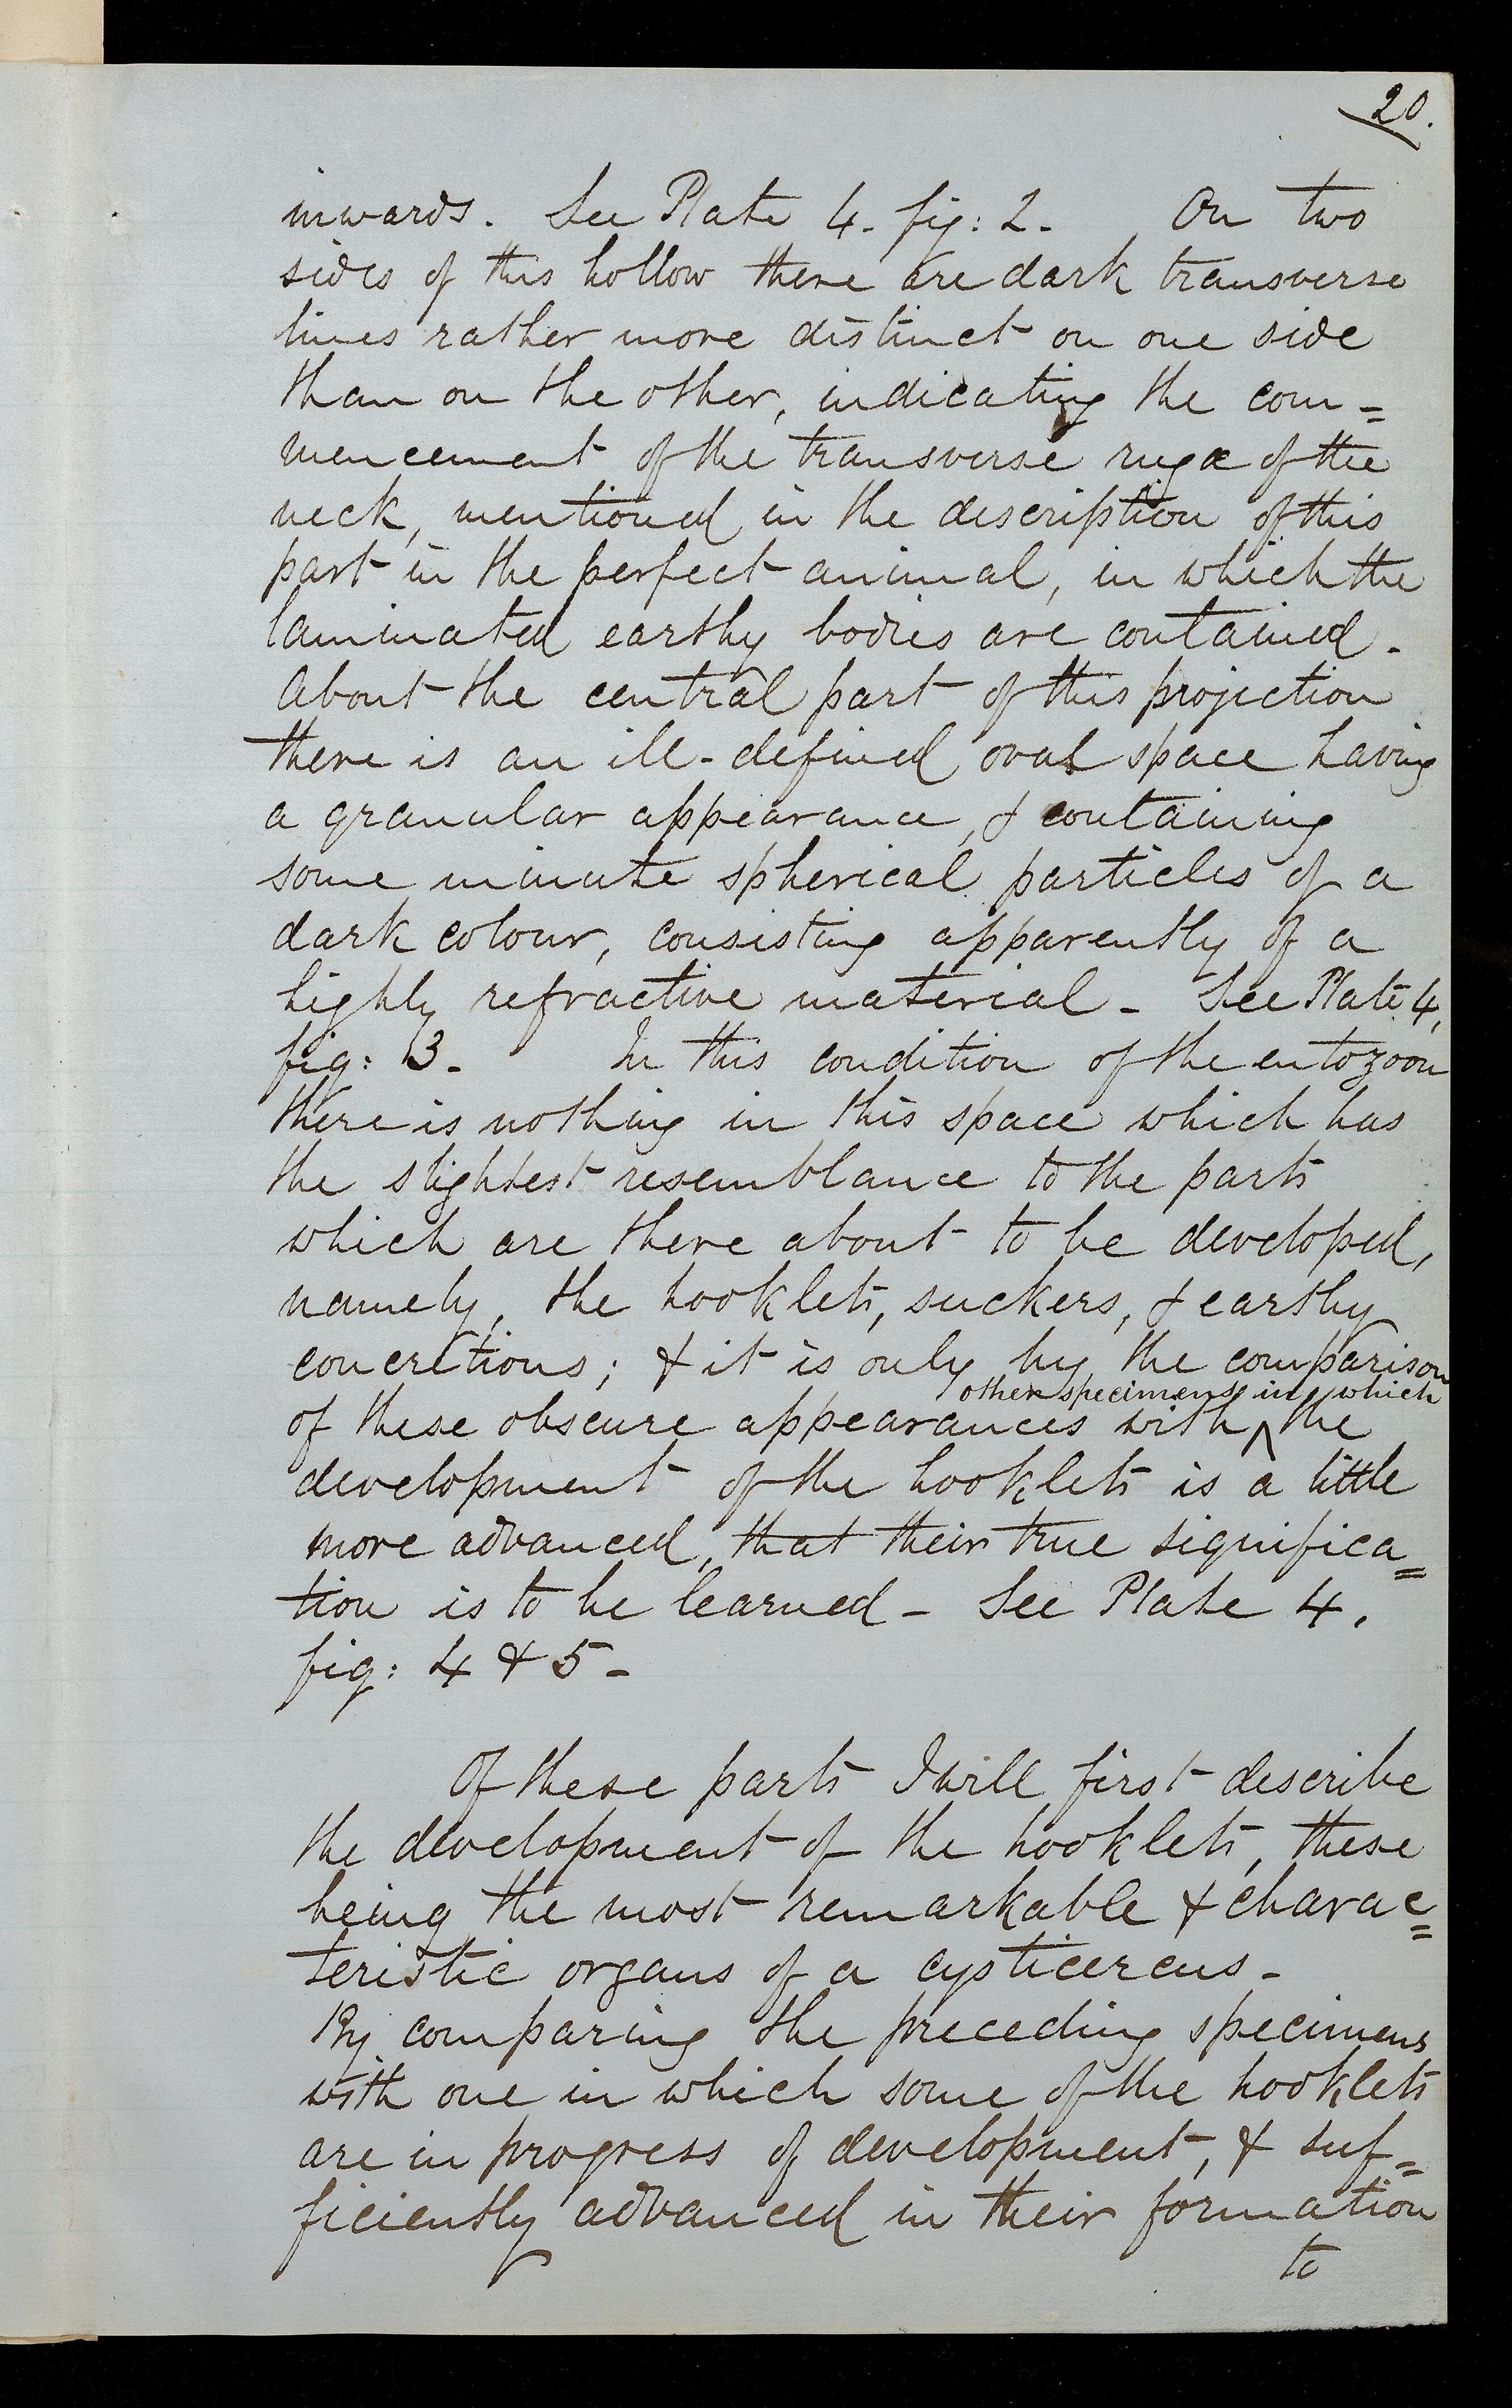 20.
inwards. See Plate 4. fig: 2. On two
sides of this hollow there are dark transverse
lines rather more distinct on one side
than on the other, indicating the com=
mencement of the transverse rugæ of the
neck, mentioned in the description of this
part in the perfect animal, in which the
laminated earthy bodies are contained.
About the central part of this projection
there is an ill-defined oval space having
a granular appearance, & containing
some minute spherical particles of a
dark colour, consisting apparently of a
highly refractive material - See Plate 4,
fig: 3. In this condition of the entozoon
there is nothing in this space which has
the slightest resemblance to the parts
which are there about to be developed,
namely, the hooklets, suckers, & earthy
concretions; & it is only by the comparison
other specimens in which
of these obscure appearances with ^ the
development of the hooklets is a little
more advanced, that their true significa=
tion is to be learned - See Plate 4.
fig: 4 & 5 -
Of these parts I will first describe
the development of the hooklets, these
being the most remarkable & charac=
teristic organs of a cysticercus -
By comparing the preceding specimens
with one in which some of the hooklets
are in progress of development, & suf=
ficiently advanced in their formation
to